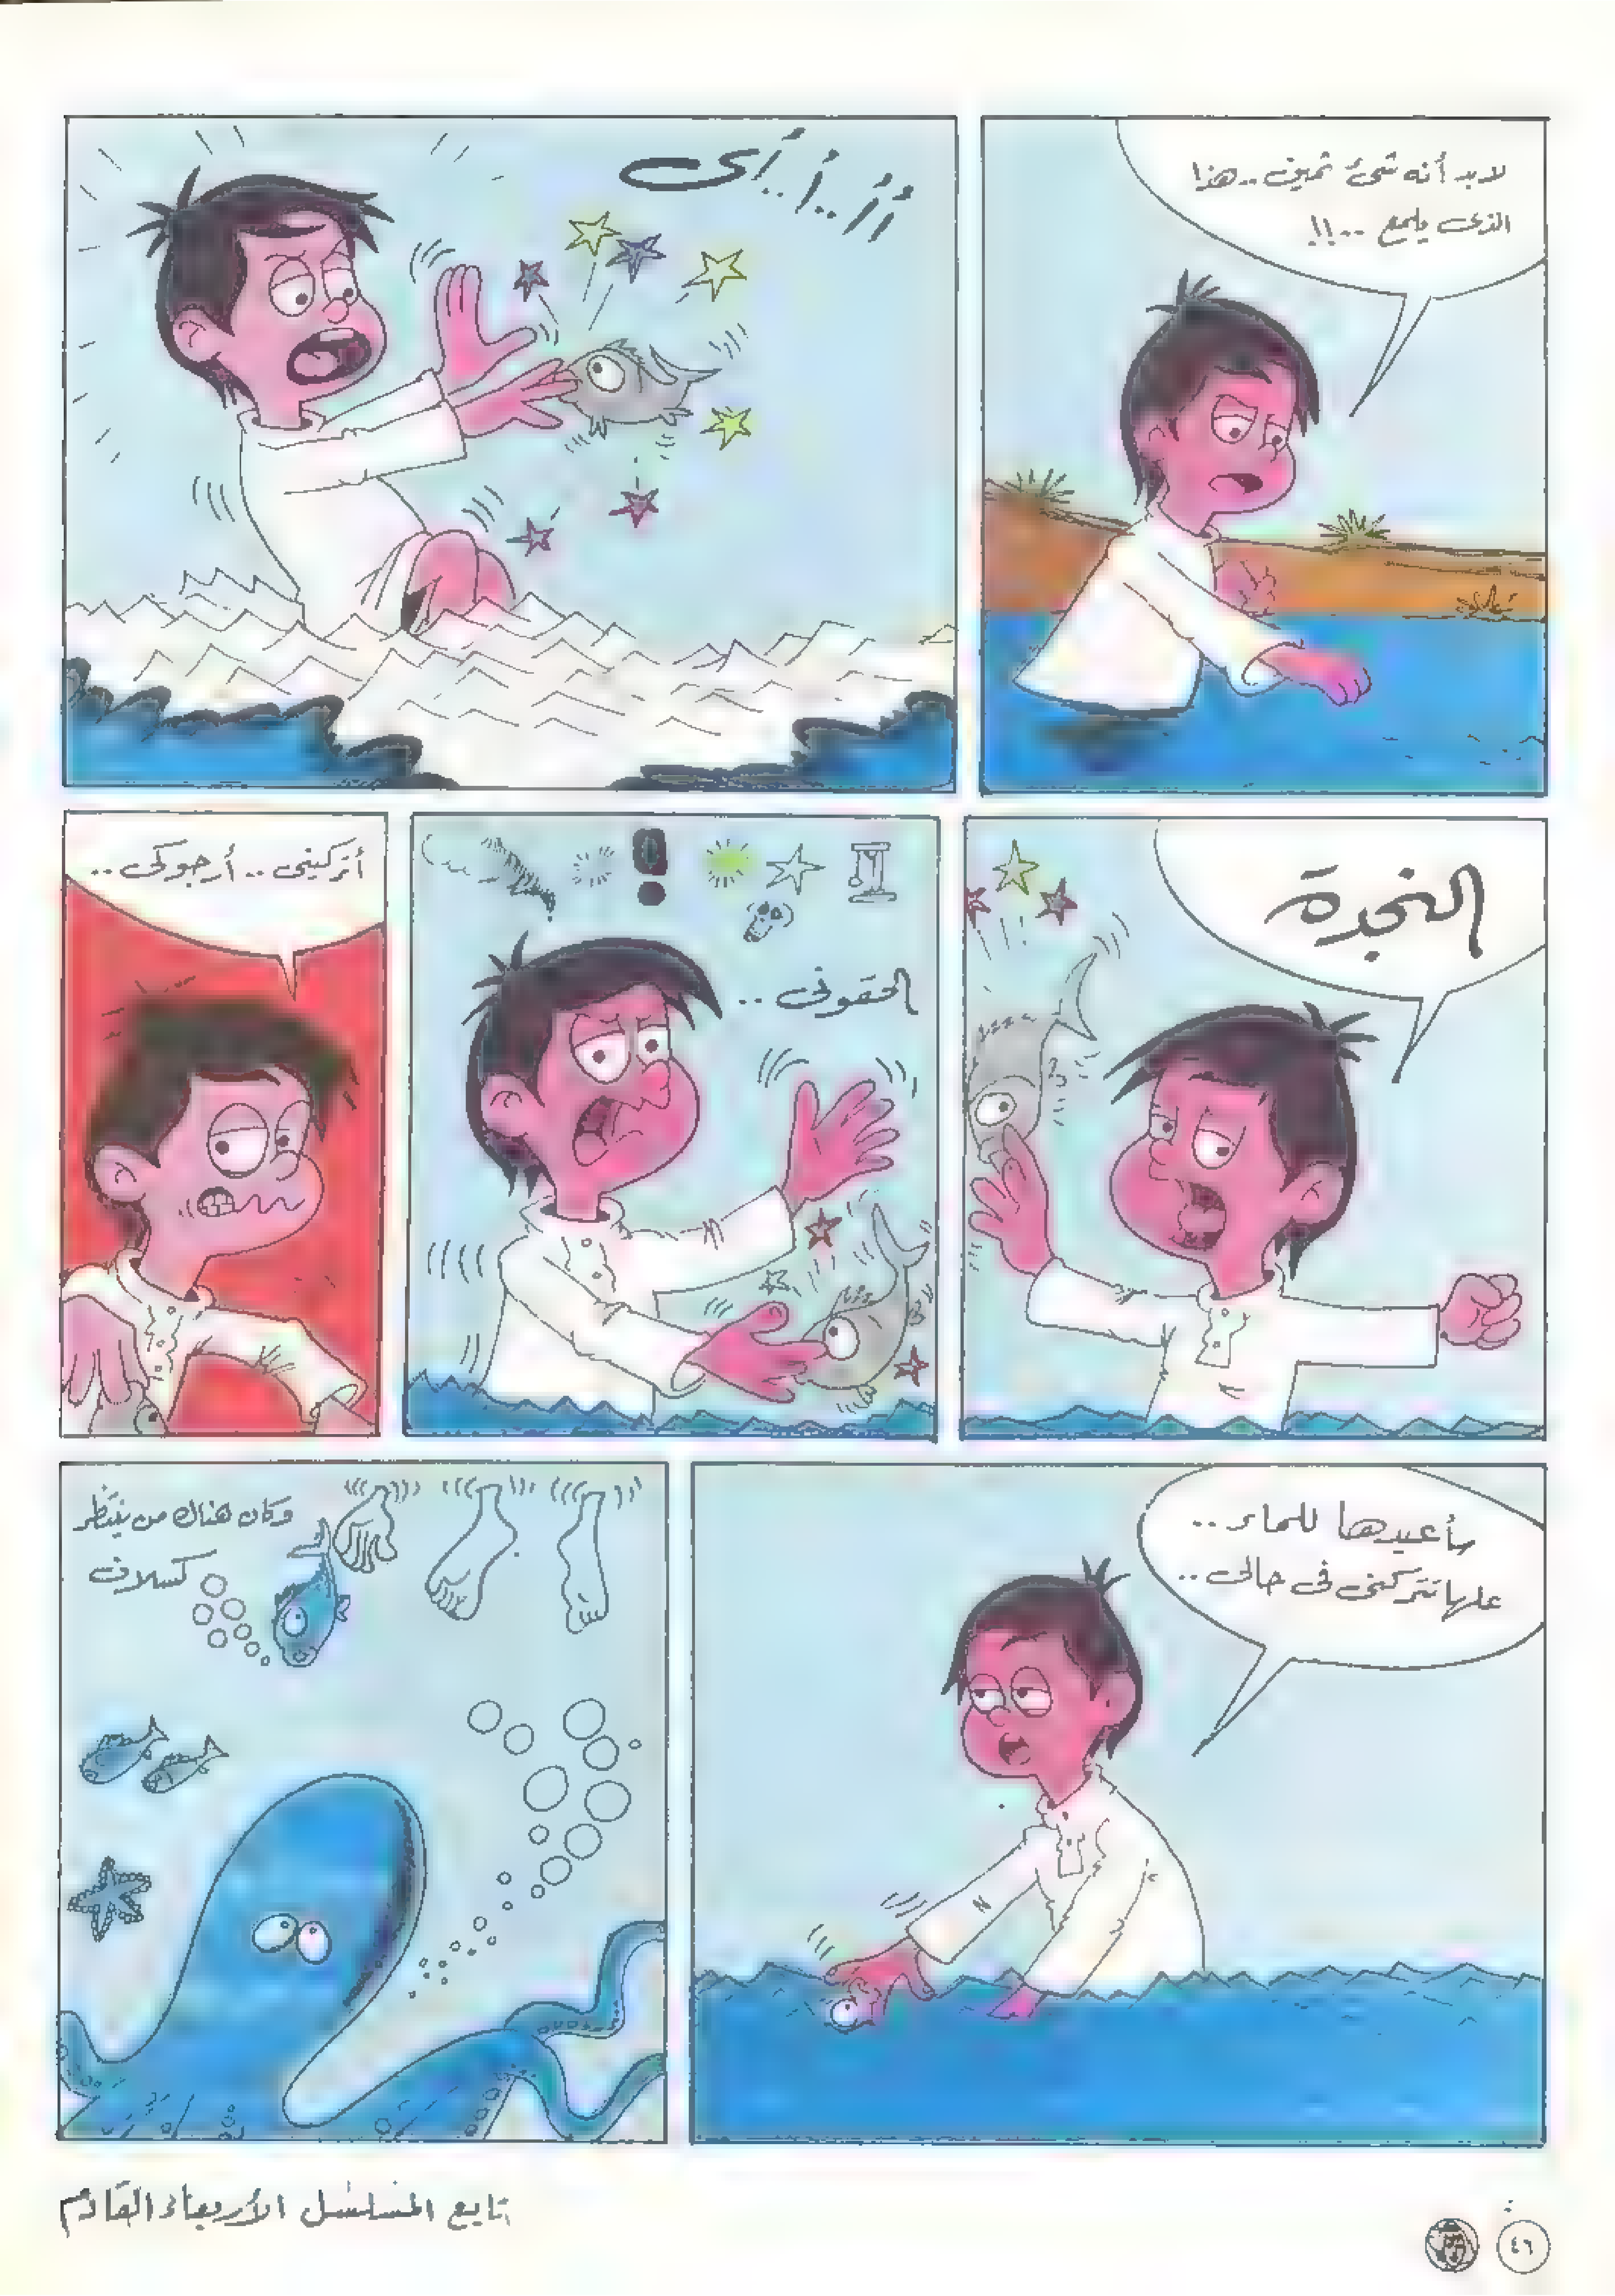 لابد أنه شئ ثمين .. هذا
الذى يلمع ..!!
أأ .. أ .. أى
النجدة
الحقونى ..
أتركينى .. أرجوكى ..
سأعيدها للماء ..
علها تتركنى فى حالى ..
وكان هناك من ينتظر
كسلان
تابع المسلسل الأربعاء القادم
٤٦